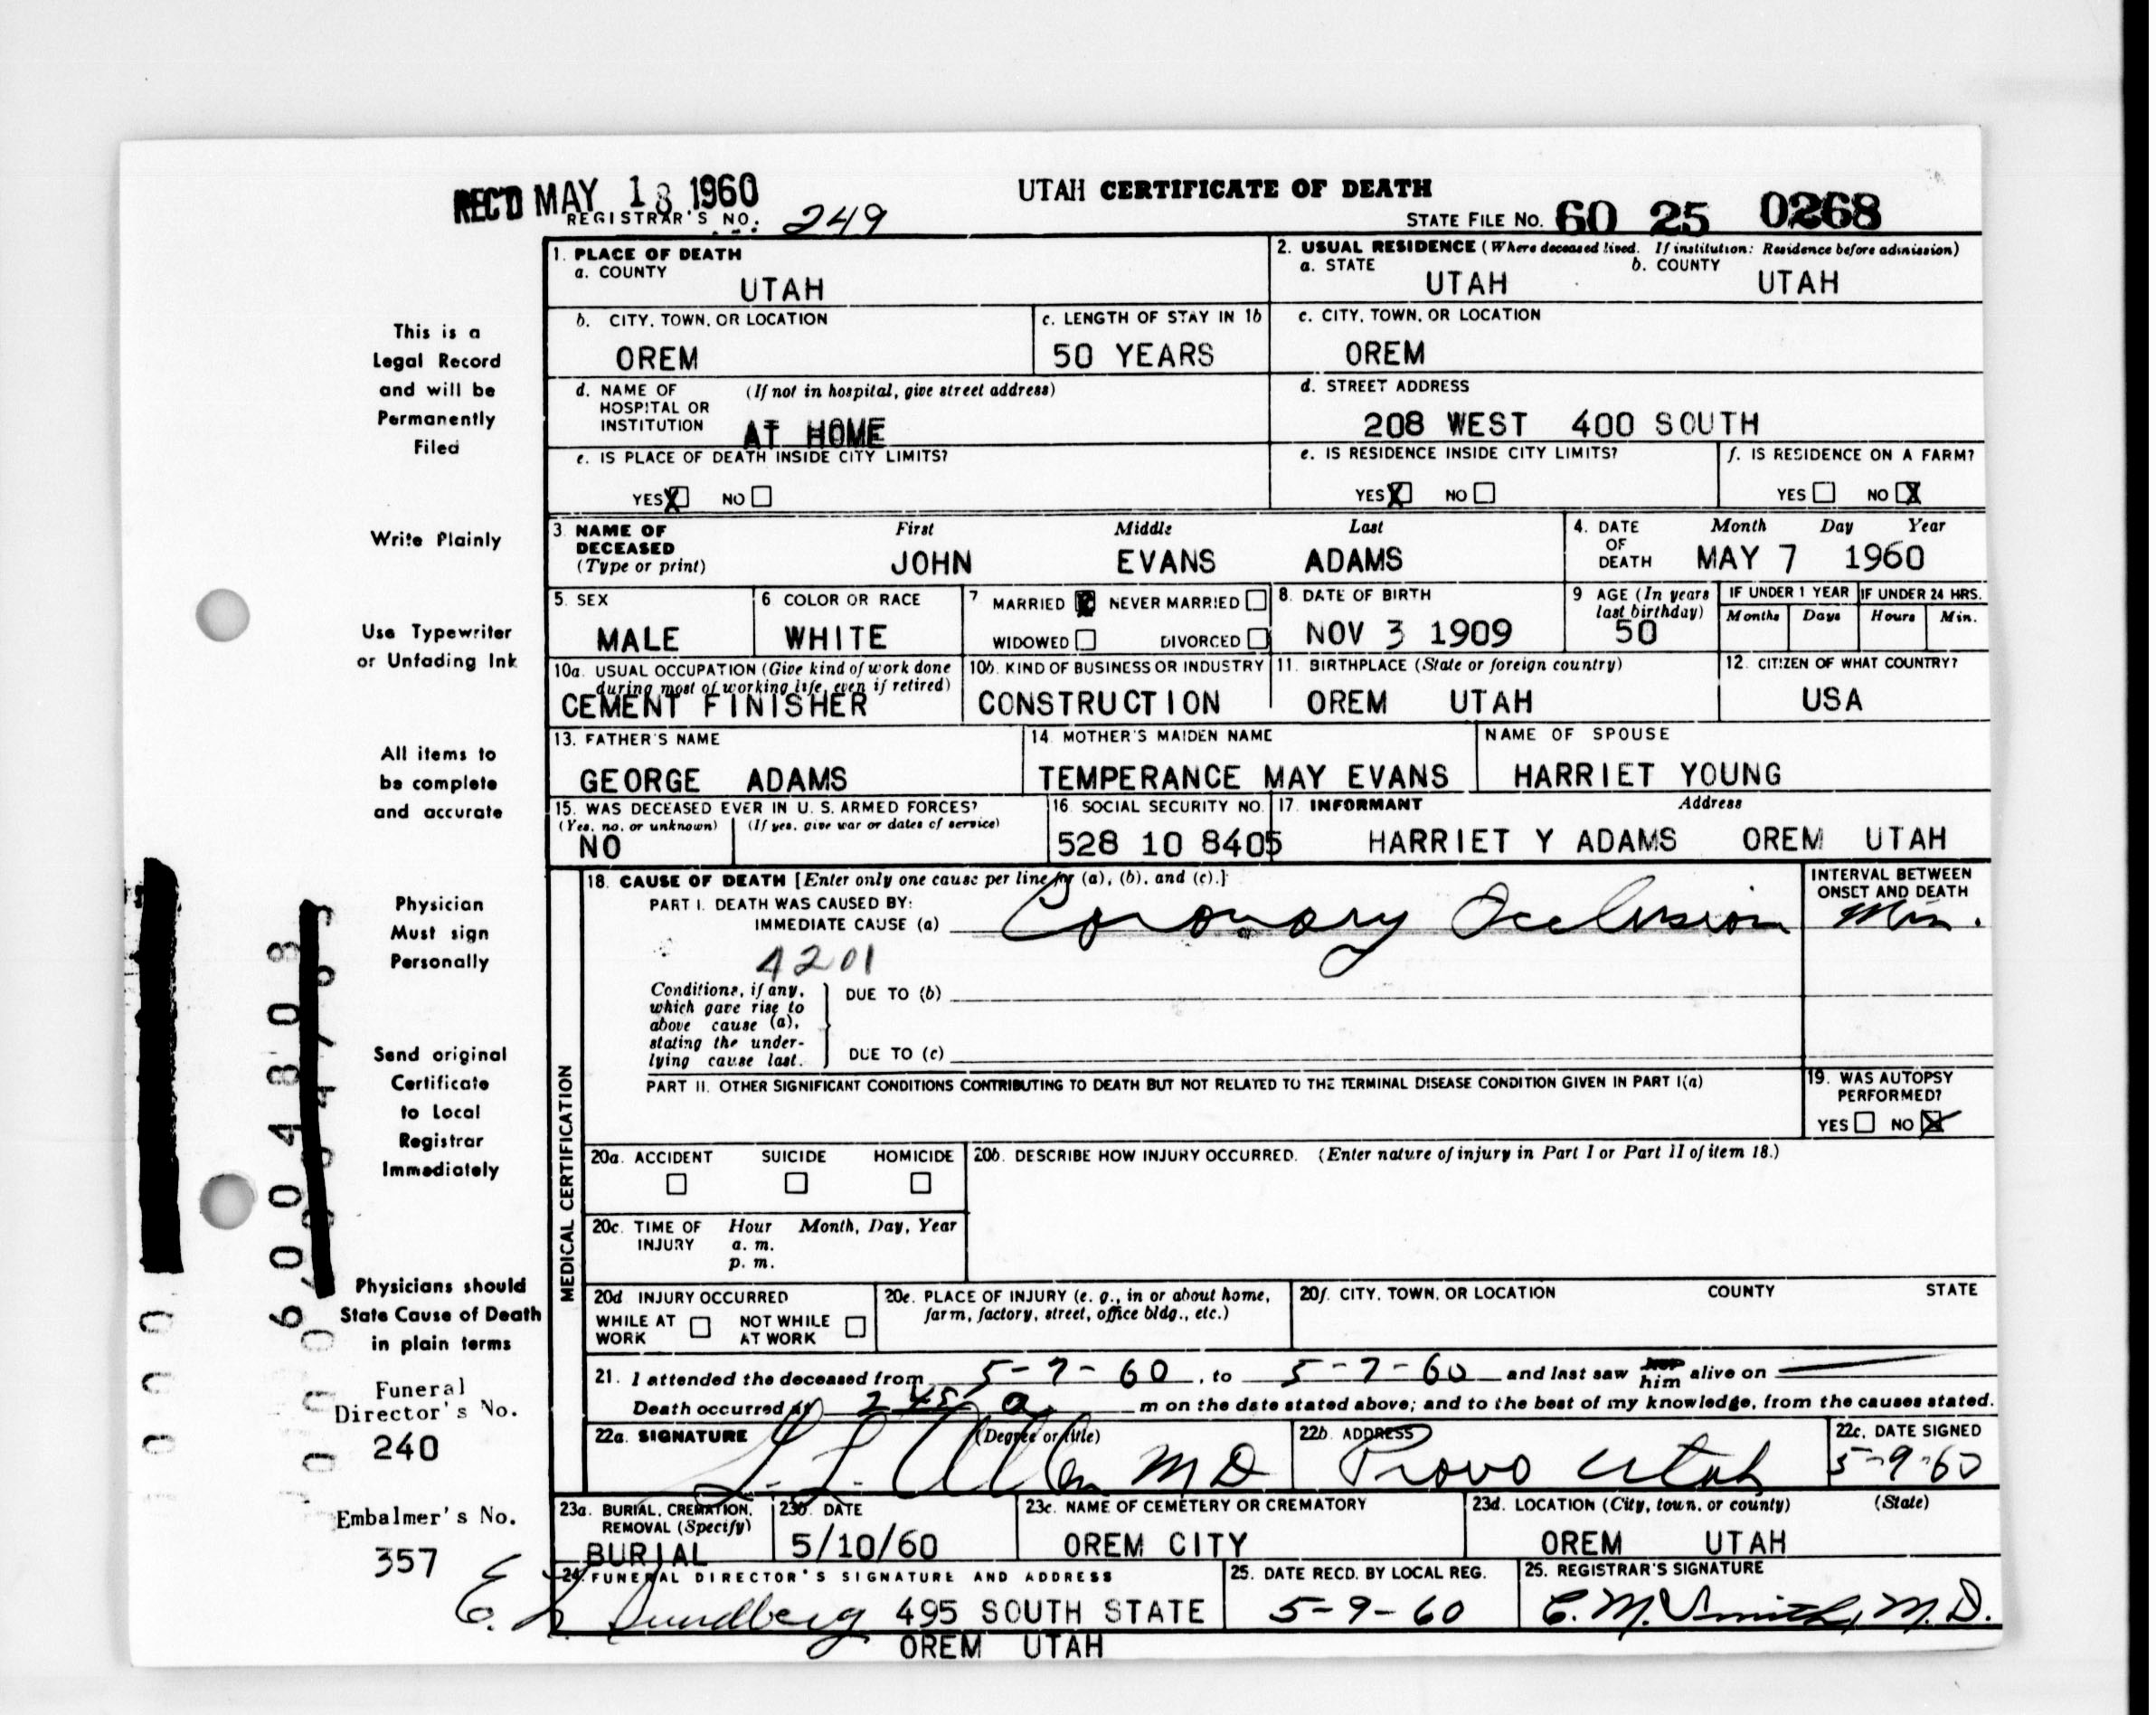 REC'D MAY 18 1960
UTAH CERTIFICATE OF DEATH
REGISTRAR'S NO. 249
STATE FILE NO. 60 25 0268
1. PLACE OF DEATH
a. COUNTY
UTAH
2. USUAL RESIDENCE (Where deceased lived. If institution: Residence before admission)
a. STATE b. COUNTY
UTAH UTAH
b. CITY, TOWN, OR LOCATION
OREM
c. LENGTH OF STAY IN 1b
50 YEARS
c. CITY, TOWN, OR LOCATION
OREM
d. NAME OF HOSPITAL OR INSTITUTION (If not in hospital, give street address)
AT HOME
d. STREET ADDRESS
208 WEST 400 SOUTH
e. IS PLACE OF DEATH INSIDE CITY LIMITS?
YES X NO
e. IS RESIDENCE INSIDE CITY LIMITS?
YES X NO
f. IS RESIDENCE ON A FARM?
YES NO X
3 NAME OF DECEASED (Type or print)
First Middle Last
JOHN EVANS ADAMS
4. DATE OF DEATH
Month Day Year
MAY 7 1960
5. SEX
MALE
6 COLOR OR RACE
WHITE
7 MARRIED NEVER MARRIED
WIDOWED DIVORCED
8. DATE OF BIRTH
NOV 3 1909
9 AGE (In years last birthday)
50
IF UNDER 1 YEAR IF UNDER 24 HRS.
Months Days Hours Min.
10a. USUAL OCCUPATION (Give kind of work done during most of working life, even if retired)
CEMENT FINISHER
10b. KIND OF BUSINESS OR INDUSTRY
CONSTRUCTION
11. BIRTHPLACE (State or foreign country)
OREM UTAH
12. CITIZEN OF WHAT COUNTRY?
USA
13. FATHER'S NAME
GEORGE ADAMS
14. MOTHER'S MAIDEN NAME
TEMPERANCE MAY EVANS
NAME OF SPOUSE
HARRIET YOUNG
15. WAS DECEASED EVER IN U. S. ARMED FORCES?
(Yes, no, or unknown) (If yes, give war or dates of service)
NO
16. SOCIAL SECURITY NO.
528 10 8405
17. INFORMANT Address
HARRIET Y ADAMS OREM UTAH
MEDICAL CERTIFICATION
18. CAUSE OF DEATH [Enter only one cause per line for (a), (b), and (c).]
PART I. DEATH WAS CAUSED BY:
IMMEDIATE CAUSE (a) Coronary Occlusion
INTERVAL BETWEEN ONSET AND DEATH
Min.
4201
Conditions, if any, which gave rise to above cause (a), stating the underlying cause last.
DUE TO (b)
DUE TO (c)
PART II. OTHER SIGNIFICANT CONDITIONS CONTRIBUTING TO DEATH BUT NOT RELATED TO THE TERMINAL DISEASE CONDITION GIVEN IN PART I(a)
19. WAS AUTOPSY PERFORMED?
YES NO X
20a. ACCIDENT SUICIDE HOMICIDE
20b. DESCRIBE HOW INJURY OCCURRED. (Enter nature of injury in Part I or Part II of item 18.)
20c. TIME OF INJURY Hour Month, Day, Year
a. m.
p. m.
20d INJURY OCCURRED
WHILE AT WORK NOT WHILE AT WORK
20e. PLACE OF INJURY (e. g., in or about home, farm, factory, street, office bldg., etc.)
20f. CITY, TOWN, OR LOCATION COUNTY STATE
21. I attended the deceased from 5-7-60, to 5-7-60 and last saw him alive on
Death occurred at 2 45 a m on the date stated above; and to the best of my knowledge, from the causes stated.
22a. SIGNATURE (Degree or title)
L. L. Allen M D
22b. ADDRESS
Provo Utah
22c. DATE SIGNED
5-9-60
23a. BURIAL, CREMATION, REMOVAL (Specify)
BURIAL
23b. DATE
5/10/60
23c. NAME OF CEMETERY OR CREMATORY
OREM CITY
23d. LOCATION (City, town, or county) (State)
OREM UTAH
24. FUNERAL DIRECTOR'S SIGNATURE AND ADDRESS
E. L. Sundberg 495 SOUTH STATE
OREM UTAH
25. DATE RECD. BY LOCAL REG.
5-9-60
25. REGISTRAR'S SIGNATURE
C. M. Smith, M. D.
This is a
Legal Record
and will be
Permanently
Filed
Write Plainly
Use Typewriter
or Unfading Ink
All items to
be complete
and accurate
Physician
Must sign
Personally
Send original
Certificate
to Local
Registrar
Immediately
Physicians should
State Cause of Death
in plain terms
Funeral
Director's No.
240
Embalmer's No.
357
6004803